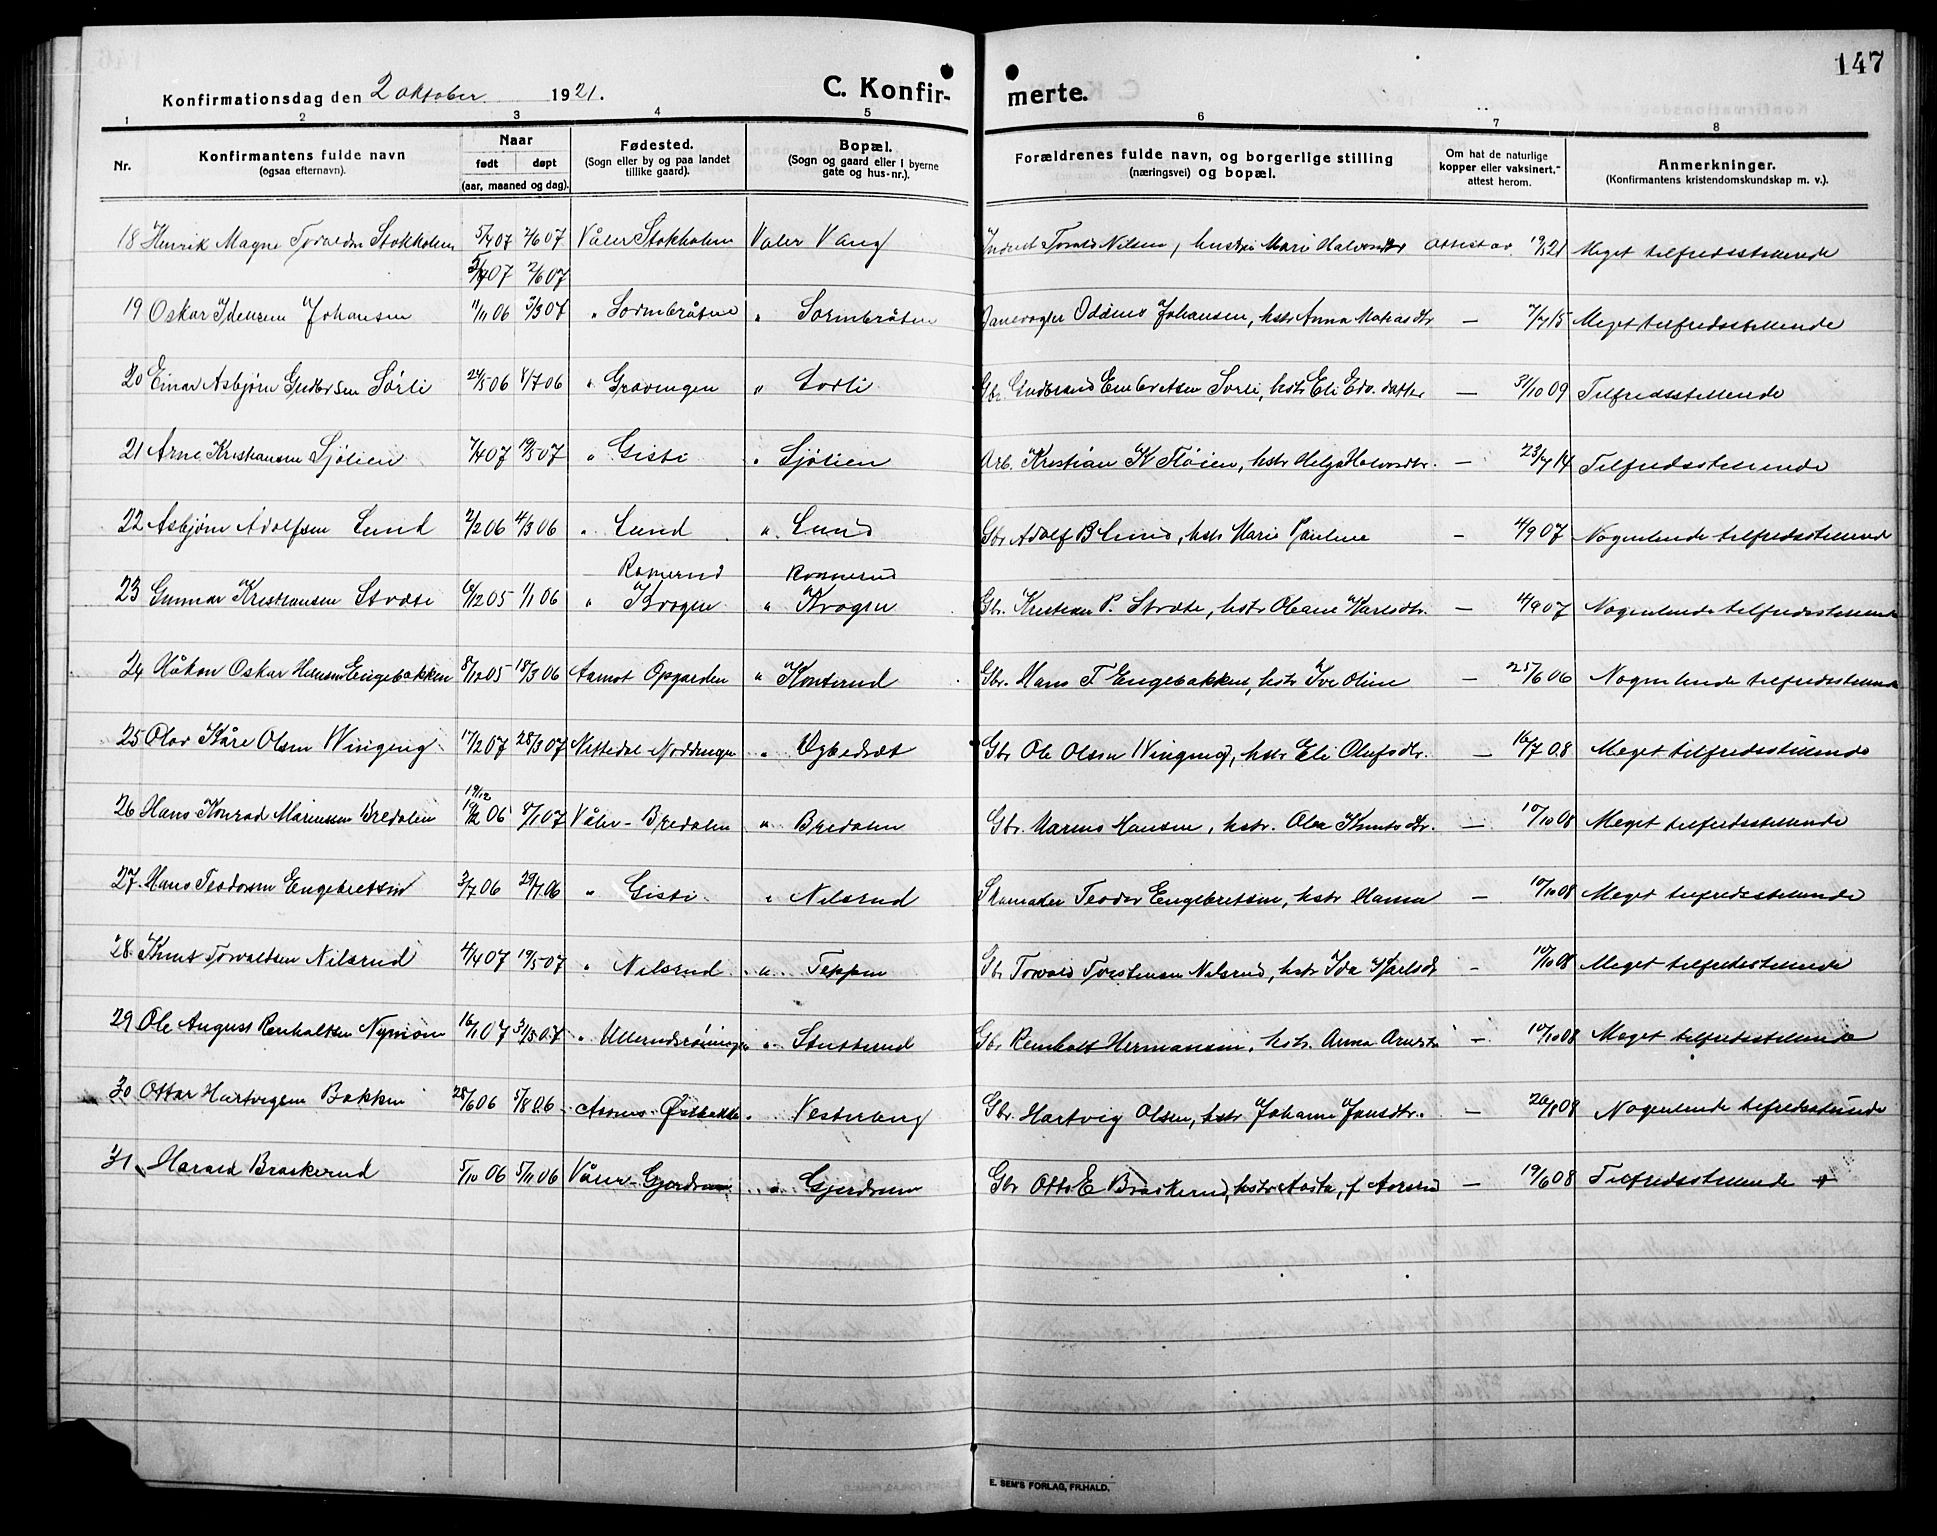 147
Konfirmationsdag den 2 oktober 1921.
C. Konfirmerte.
1 2 3 4 5 6 7 8
Nr.
Konfirmantens fulde navn
(ogsaa efternavn).
Naar
født døpt
(aar, maaned og dag).
Fødested.
(Sogn eller by og paa landet
tillike gaard).
Bopæl.
(Sogn og gaard eller i byerne
gate og hus-nr.).
Forældrenes fulde navn, og borgerlige stilling
(næringsvei) og bopæl.
Om hat de naturlige
kopper eller vaksinert,
attest herom.
Anmerkninger.
(Konfirmantens kristendomskundskap m. v.).
18 Henrik Magne Stokholm 5/4 07 2/6 07 Våler Stokholm Våler Vang Nilsen, hustru Marie attest av 21 Meget tilfredsstillende
5/4 07 2/6 07
19 Oskar Johansen 11/11 06 3/3 07 " Sormbråten " Sormbråten Banevogter Johansen, hstr Anna — 7/7 15 Meget tilfredsstillende
20 Einar Asbjørn Sörli 24/5 06 8/7 06 " Gravingen " Sorli Gbr. Gudbrand Embretsen Sorli, hstr Eli Edv. datter — 31/10 09 Tilfredsstillende
21 Arne Kristiansen Sjölien 7/4 07 19/5 07 " Gisti " Sjölien Arb. Kristian K Flöien, hstr Helga Halvorsdtr. — 23/7 14 Tilfredsstillende
22 Asbjørn Adolfsen Lund 2/2 06 4/3 06 " Lund " Lund Gbr Adolf B Lund, hstr Marie Pauline — 4/9 07 Nogenlunde tilfredsstillende
Romerud Romerud
23 Gunnar Kristiansen Stræte 6/12 05 1/1 06 " Krogen " Krogen Gbr. Kristian P. Stræte, hstr Oleane Karlsdtr. — 4/9 07 Nogenlunde tilfredsstillende
24 Håkon Oskar Hansen Engebakken 8/12 05 18/3 06 Aamot Opgarden " Konterud Gbr. Hans T. Engebakken, hstr Ive Oline — 25/6 06 Nogenlunde tilfredsstillende
25 Olav Kåre Olsen Wingeng 17/2 07 28/3 07 " Gbr Ole Olsen Wingeng, hstr Eli Olufsdtr. — 16/7 08 Meget tilfredsstillende
19/12
26 Hans Konrad Marinssen Bredalen 19/12 06 8/1 07 Våler – Bredalen " Bredalen Gbr. Marius Hansen, hstr. Olea Knutsdtr. — 10/10 08 Meget tilfredsstillende
27. Hans Teodorsen Engebretsen 3/7 06 29/7 06 " Gisti " Nilsrud Skomaker Teodor Engebretsen, hstr Hansa — 10/10 08 Meget tilfredsstillende
28. Knut Torvaldsen Nilsrud 4/4 07 19/5 07 " Nilsrud " Teppen Gbr Torvald Torstensen Nilsrud, hstr Ida Karlsdtr — 10/10 08 Meget tilfredsstillende
29 Ole August Renholtsen Nymoen 16/1 07 31/5 07 " " Stutterud Gbr Renholt Hermansen, hstr. Anna — 10/10 08 Meget tilfredsstillende
30 Ottar Hartvigsen Bakken 28/6 06 5/8 06 Aasnes Østbakke " Vesterang Gbr. Hartvig Olsen, hstr Johanne Jensdtr. — 26/8 08 Nogenlunde tilfredsstillende
31 Harald Braskerud 5/10 06 5/11 06 Våler – Gjerdrum " Gjerdrum Gbr Otto E Braskerud, hstr Aasta, f Aasrud — 19/6 08 Tilfredsstillende +
E. SEM'S FORLAG, FR.HALD.